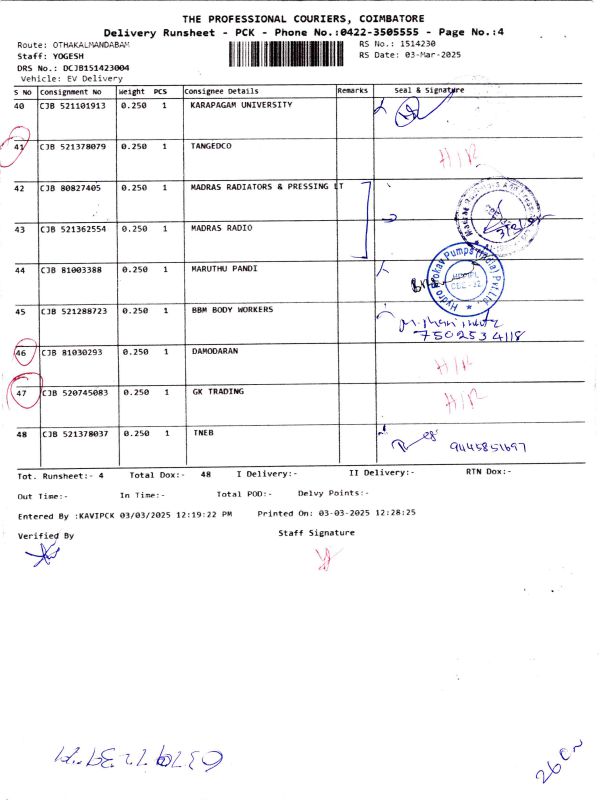 THE PROFESSIONAL COURIERS, COIMBATORE
Delivery Runsheet - PCK - Phone No.:0422-3505555 - Page No.:4
Route: OTHAKALMANDABAM RS No.: 1514230
Staff: YOGESH RS Date: 03-Mar-2025
DRS No.: DCJB151423004
Vehicle: EV Delivery
S No Consignment No Weight PCS Consignee Details Remarks Seal & Signature
40 CJB 521101913 0.250 1 KARAPAGAM UNIVERSITY
41 CJB 521378079 0.250 1 TANGEDCO H/R
42 CJB 80827405 0.250 1 MADRAS RADIATORS & PRESSING LT
43 CJB 521362554 0.250 1 MADRAS RADIO
44 CJB 81003388 0.250 1 MARUTHU PANDI
Hydro Prokav Pumps (India) Pvt. Ltd.
45 CJB 521288723 0.250 1 BBM BODY WORKERS
7502534118
46 CJB 81030293 0.250 1 DAMODARAN H/R
47 CJB 520745083 0.250 1 GK TRADING H/R
48 CJB 521378037 0.250 1 TNEB 9445851697
Tot. Runsheet:- 4 Total Dox:- 48 I Delivery:- II Delivery:- RTN Dox:-
Out Time:- In Time:- Total POD:- Delvy Points:-
Entered By :KAVIPCK 03/03/2025 12:19:22 PM Printed On: 03-03-2025 12:28:25
Verified By Staff Signature